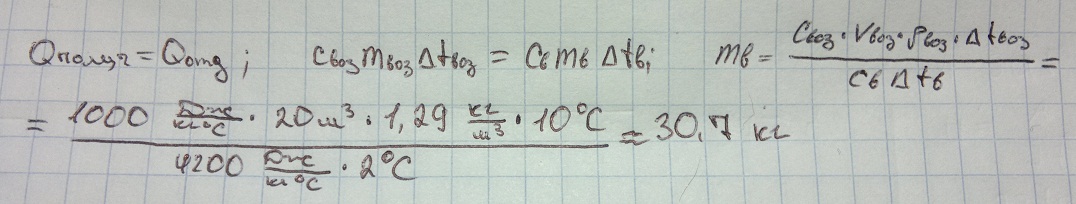 Qполуч = Qотд; Cвоз mвоз Δtвоз = Cв mв Δtв; mв = (Cвоз · Vвоз · ρвоз · Δtвоз) / (Cв Δtв) =
= (1000 Дж/кг°C · 20 м³ · 1,29 кг/м³ · 10°C) / (4200 Дж/кг°C · 2°C) ≈ 30,7 кг